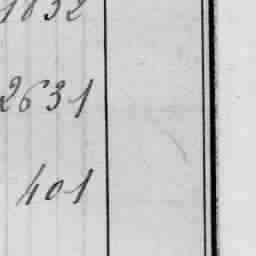 1832
2631
401